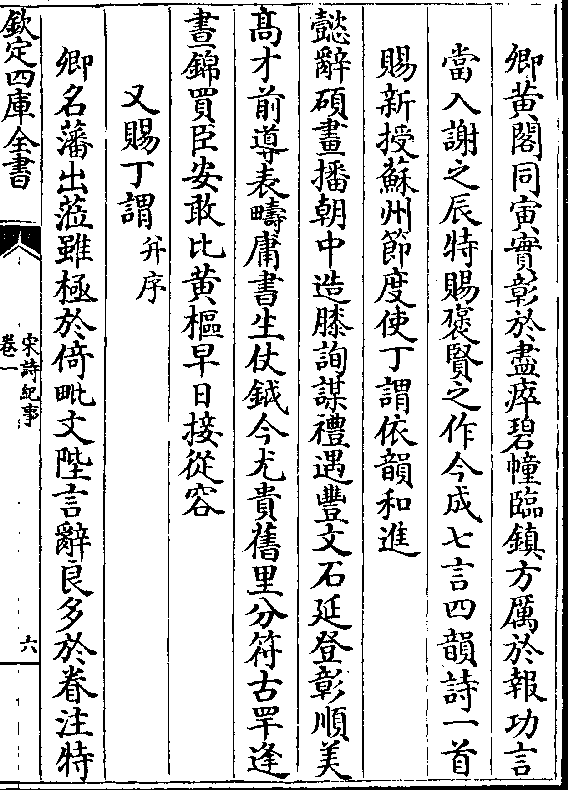 卿黃閣同寅實彰於盡瘁碧幢臨鎮方厲於報功言
當入謝之辰特賜褒賢之作今成七言四韻詩一首
賜新授蘇州節度使丁謂依韻和進
懿辭碩畫播朝中造膝詢謀禮遇豐文石延登彰順美
髙才前導表疇庸書生仗鉞今尤貴舊里分符古罕逢
晝錦買臣安敢比黃樞早日接從容
又賜丁謂并序
卿名藩出蒞雖極於倚毗文陛言辭良多於眷注特
欽定四庫全書
宋詩紀事
卷一
六